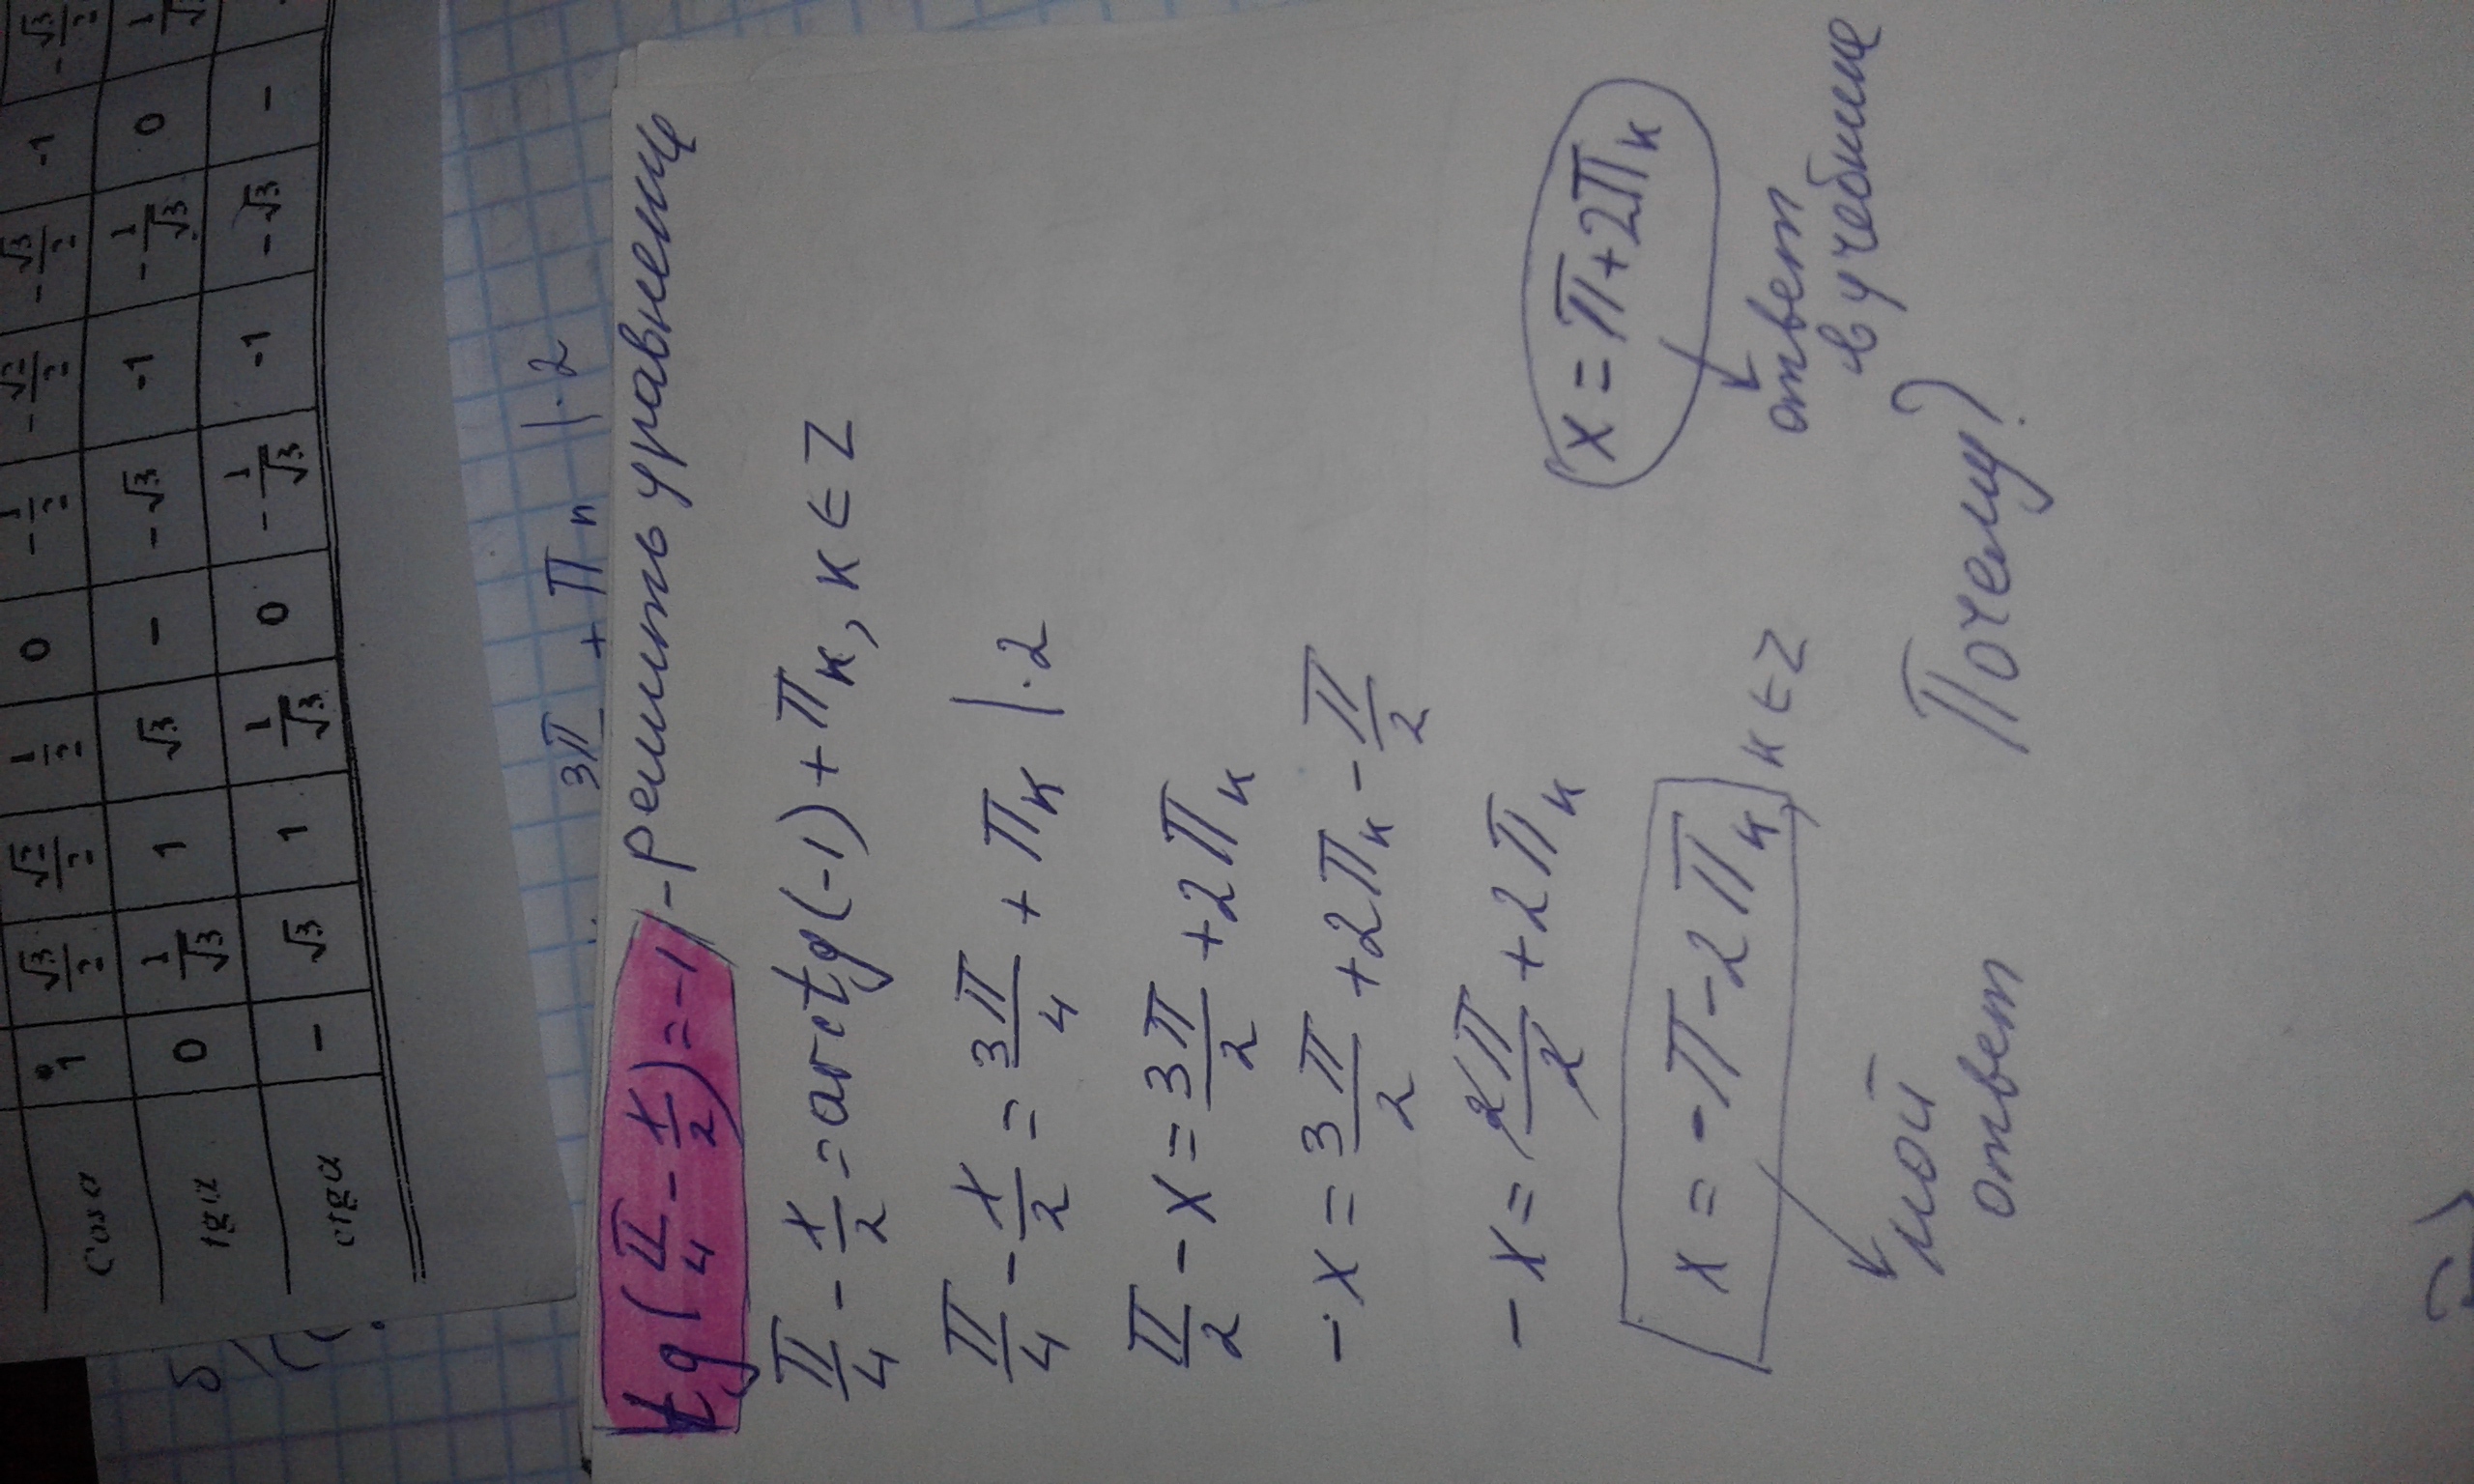 cos α 1 √3/2 √2/2 1/2 0 -1/2 -√2/2 -√3/2 -1 -√3/2
tg α 0 1/√3 1 √3 - -√3 -1 -1/√3 0
ctg α - √3 1 1/√3 0 -1/√3 -1 -√3 -
3π + πn |·2
tg(π/4 - x/2) = -1 - решить уравнение
π/4 - x/2 = arctg(-1) + πк, к ∈ Z
π/4 - x/2 = 3π/4 + πк |·2
π/2 - x = 3π/2 + 2πк
-x = 3π/2 + 2πк - π/2
-x = 2π/2 + 2πк
x = -π - 2πк, к ∈ Z
x = π + 2πк
мой ответ
ответ в учебнике
Почему?